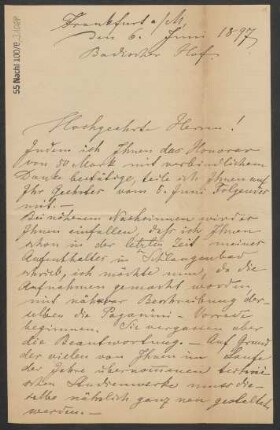 55 Nachl 100/B
Frankfurt a/M,
den 6. Juni 1897
Badischer Hof
Hochgeehrte Herren!
Indem ich Ihnen das Honorar
von 50 Mark mit verbindlichem
Danke bestätige, teile ich Ihnen auf
Ihr Geehrtes vom 5. Juni Folgendes
mit:
Bei näherem Nachsinnen wird es
Ihnen einfallen, daß ich Ihnen
schon in der letzten Zeit meines
Aufenthaltes in Schlangenbad
schrieb, ich möchte nun, da die
Aufnahmen gemacht worden
mit näherer Beschreibung der-
selben die Paganini-
beginnen. Sie vergassen aber
die Beantwortung. – Auf Grund
der vielen von Ihnen im Laufe
der Jahre übernommenen
Studienwerke muss die-
selbe nämlich ganz neu gestaltet
werden. –